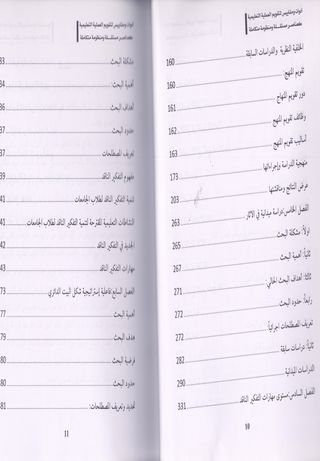 أدوات ومقاييس لتقويم العملية التعليمية
كعناصر مستقلة ومنظومة متكاملة
الخلفية النظرية والدراسات السابقة 160
تقويم المنهج: 160
دور تقويم المنهاج 161
وظائف تقويم المنهج 162
أساليب تقويم المنهج 163
منهجية الدراسة وإجراءاتها 173
عرض النتائج ومناقشتها 203
الفصل الخامس: دراسة ميدانية في الآثار 263
أولاً: مشكلة البحث 265
ثانياً: أهمية البحث 267
ثالثا: أهداف البحث الحالي 271
رابعاً: حدود البحث 272
تعريف المصطلحات إجرائياً 272
ثانياً: دراسات سابقة 282
الدراسات الميدانية 290
الفصل السادس: مستوى مهارات التفكير الناقد 331
10
أدوات ومقاييس لتقويم العملية التعليمية
كعناصر مستقلة ومنظومة متكاملة
مشكلة البحث 33
أهمية البحث: 34
أهداف البحث 36
حدود البحث 37
تعريف المصطلحات 37
مفهوم التفكير الناقد 39
تنمية التفكير الناقد لطلاب الجامعات 41
النشاطات التعليمية المقترحة لتنمية التفكير الناقد لطلاب الجامعات 41
الجديد في التفكير الناقد 42
مهارات التفكير الناقد 43
الفصل السابع: فاعلية إستراتيجية شكل البيت الدائري 73
أهمية البحث 77
هدف البحث 79
فرضية البحث 80
حدود البحث 80
تحديد وتعريف المصطلحات: 81
11